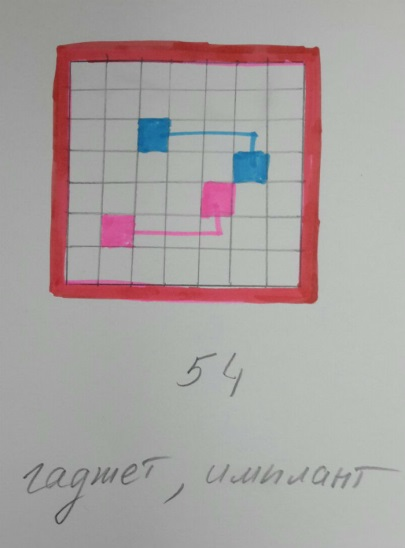 54
гаджет, имплант